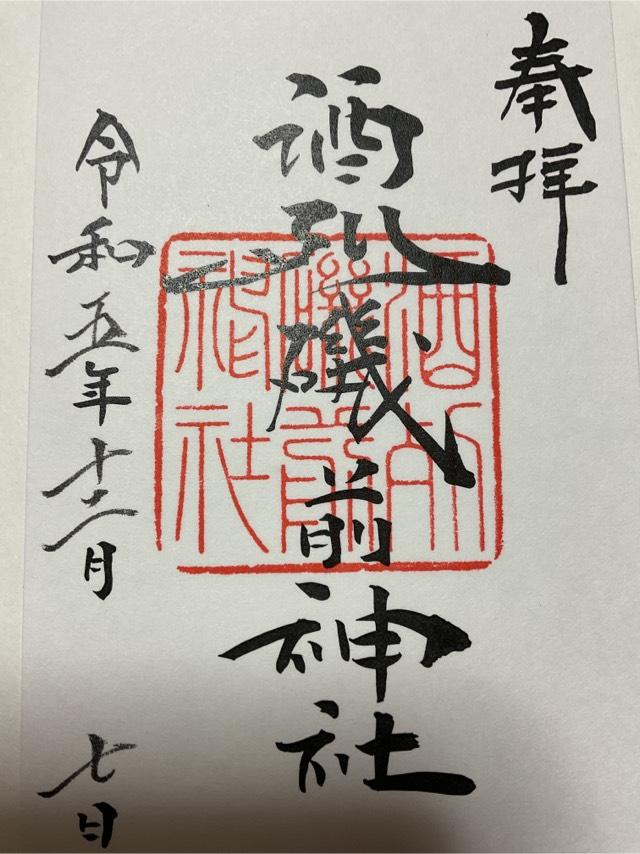 奉拝
酒列磯前神社
酒列磯前神社
令和五年十二月七日